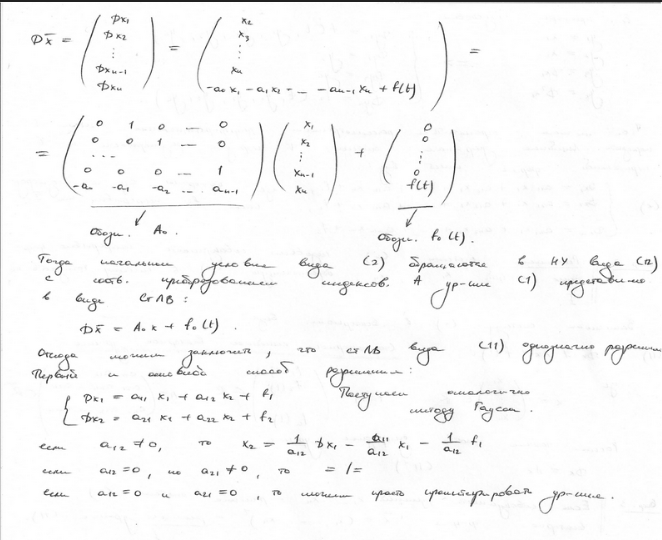 Dx̄ = ( Dx₁ Dx₂ ⋮ Dxₙ₋₁ Dxₙ ) = ( x₂ x₃ ⋮ xₙ -a₀x₁ - a₁x₂ - ... - aₙ₋₁xₙ + f(t) ) =
= ( 0 1 0 ... 0
0 0 1 ... 0
...
0 0 0 ... 1
-a₀ -a₁ -a₂ ... aₙ₋₁ ) ( x₁ x₂ ⋮ xₙ₋₁ xₙ ) + ( 0 0 ⋮ 0 f(t) )
Обозн. A₀. Обозн. f₀(t).
Тогда начальные условие вида (2) обращаются в НУ вида (12)
с соотв. преобразованием индексов. А ур-ние (1) представимо
в виде СтЛВ:
Dx̄ = A₀x + f₀(t).
Отсюда можем заключить, что стЛВ вида (11) однозначно разрешим
Первый и основной способ разрешения:
{ Dx₁ = a₁₁x₁ + a₁₂x₂ + f₁ Поступаем аналогично
Dx₂ = a₂₁x₁ + a₂₂x₂ + f₂ методу Гаусса.
если a₁₂ ≠ 0, то x₂ = 1/a₁₂ Dx₁ - a₁₁/a₁₂ x₁ - 1/a₁₂ f₁
если a₁₂ = 0, но a₂₁ ≠ 0, то = / =
если a₁₂ = 0 и a₂₁ = 0, то можем просто ур-ние.